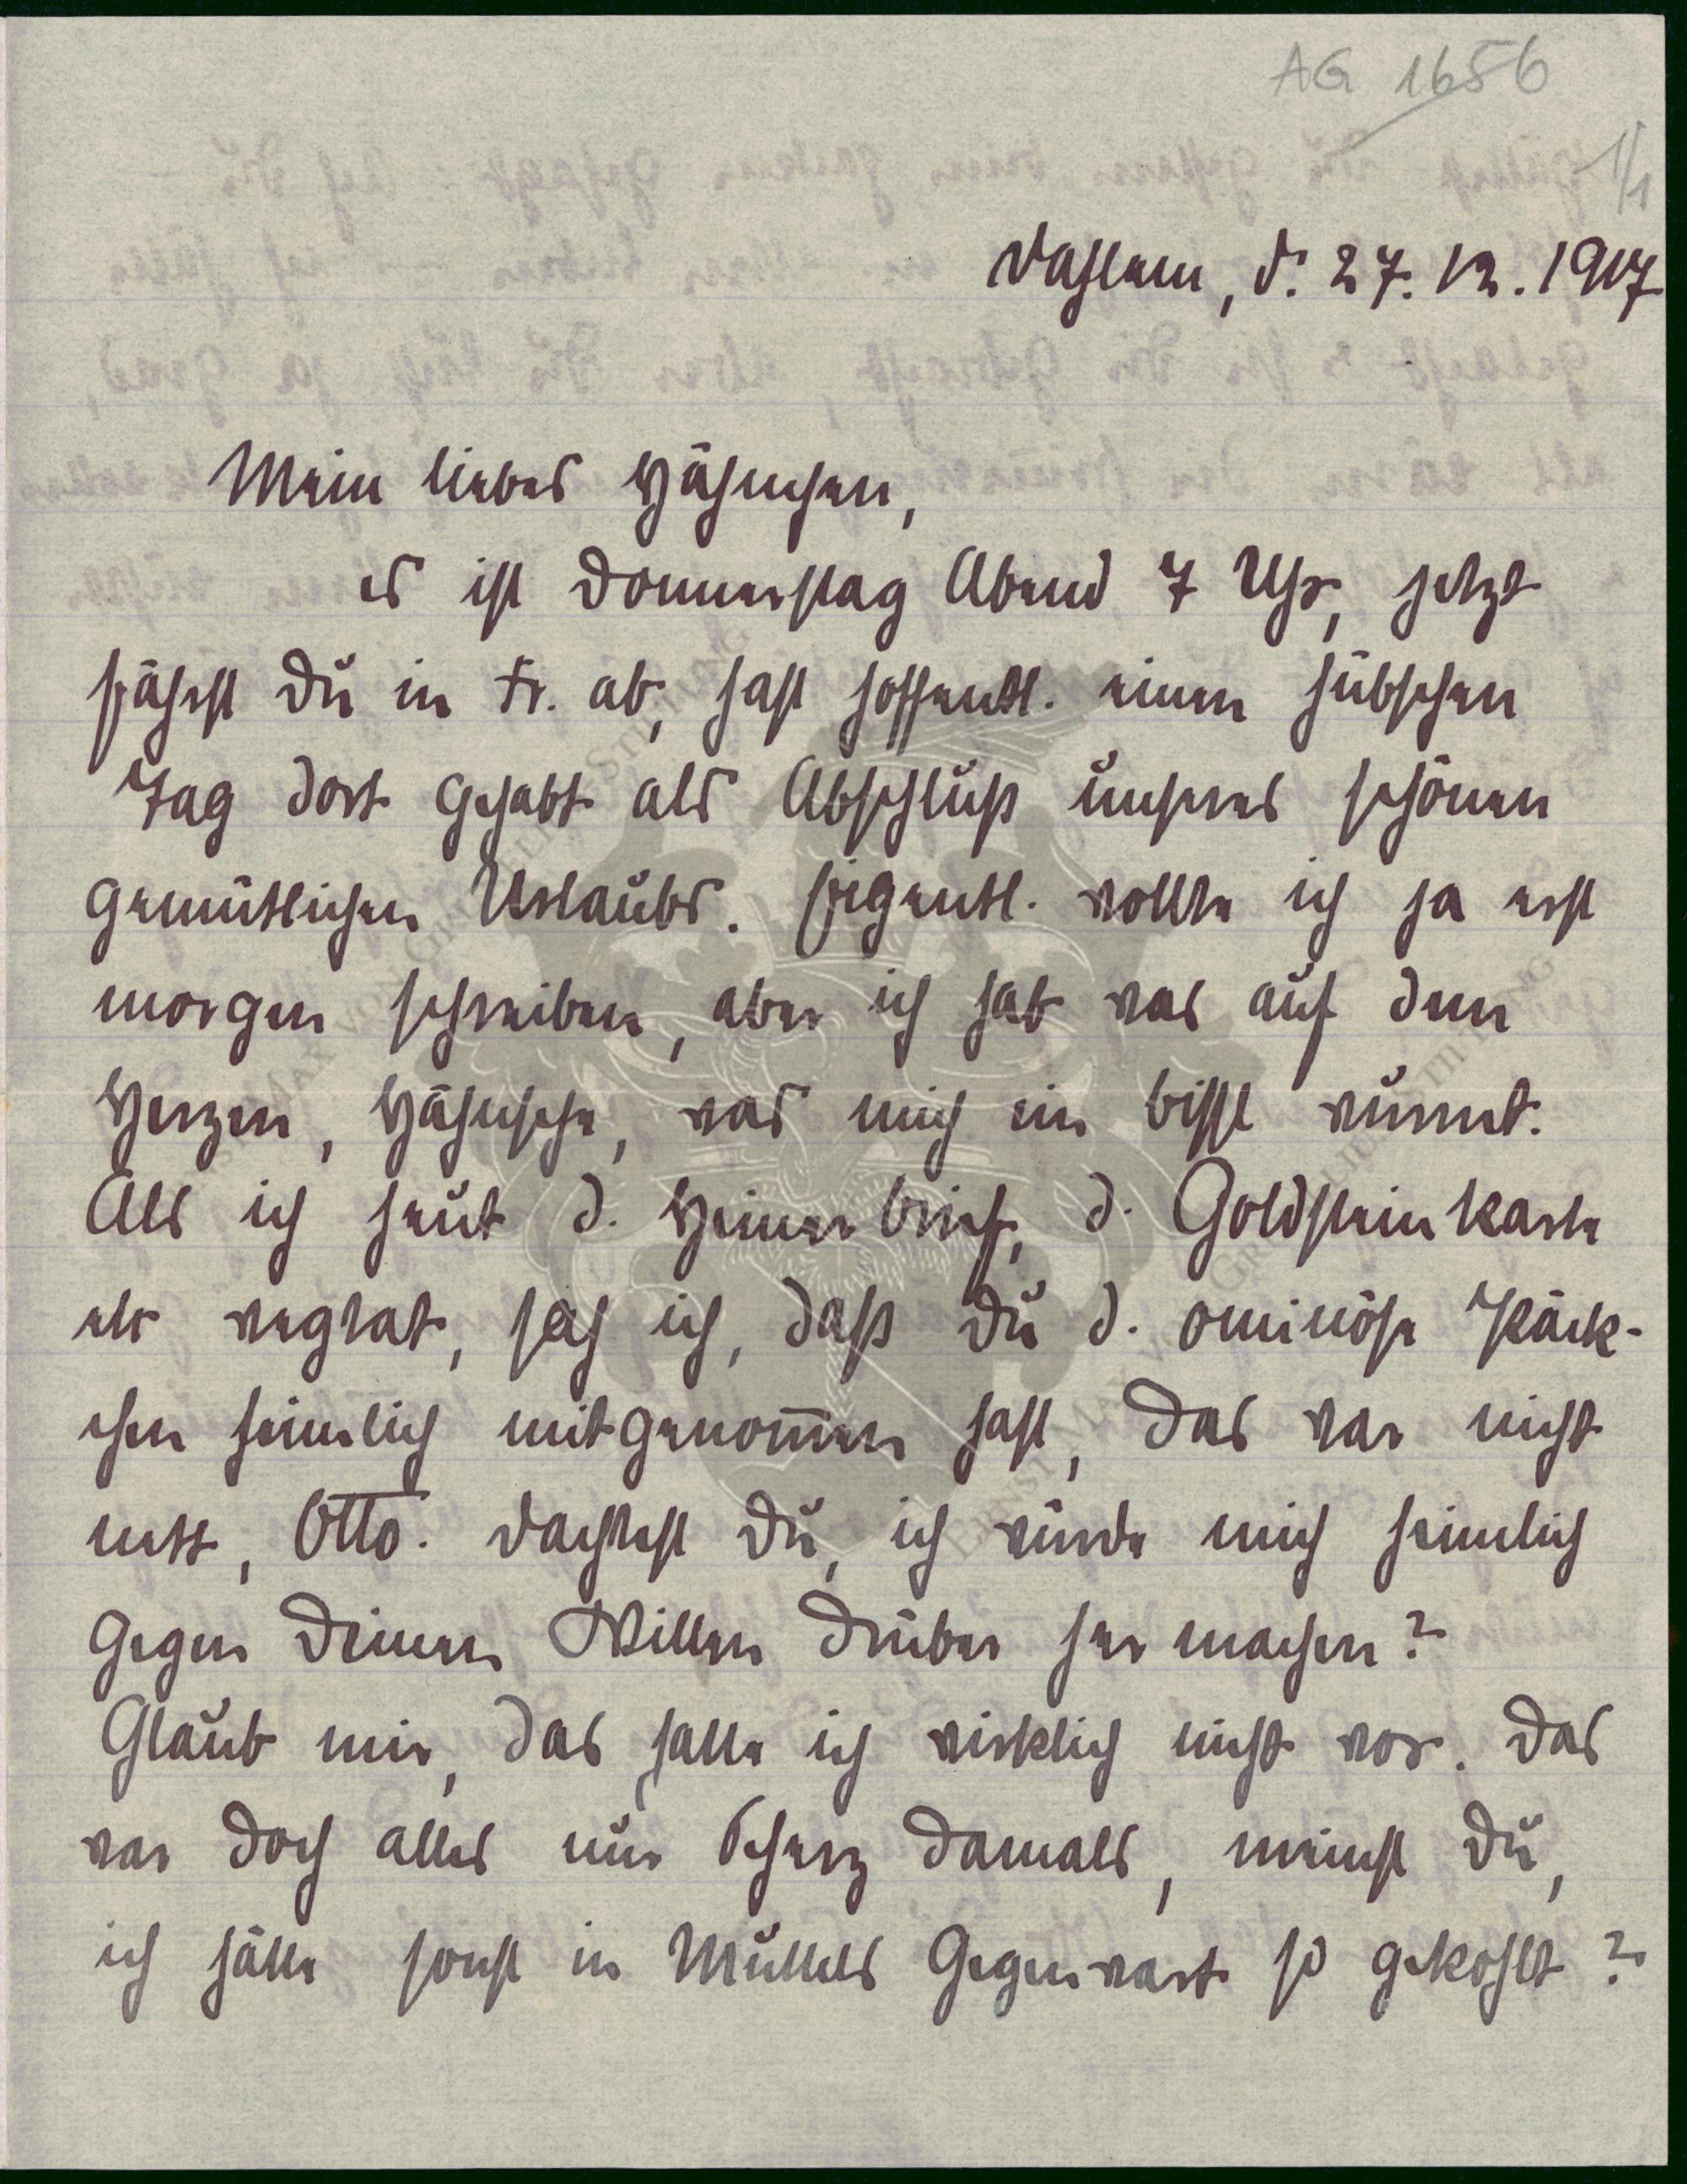 AG 1656
1/1
Dahlem, d. 27. 12. 1917
Mein liebes Hähnchen,
es ist Donnerstag Abend 7 Uhr, jetzt
fährst Du in Fr. ab, hast hoffentl. einen hübschen
Tag dort gehabt als Abschluß unseres schönen
gemütlichen Urlaubs. Eigentl. wollte ich ja erst
morgen schreiben, aber ich hab was auf dem
Herzen, Hähnche, was mich ein bissl wurmt.
Als ich heut d. Heinerbrief, d. Goldsteinkarte
etc wegtat, sah ich, daß Du d. ominöse Päck-
chen heimlich mitgenom̄en hast, das war nicht
nett, Otto. Dachtest Du, ich würde mich heimlich
gegen Deinen Willen drüber her machen?
Glaub mir, das hatte ich wirklich nicht vor. Das
war doch alles nur Scherz damals, meinst Du,
ich hätte sonst in Muttels Gegenwart so gekohlt?